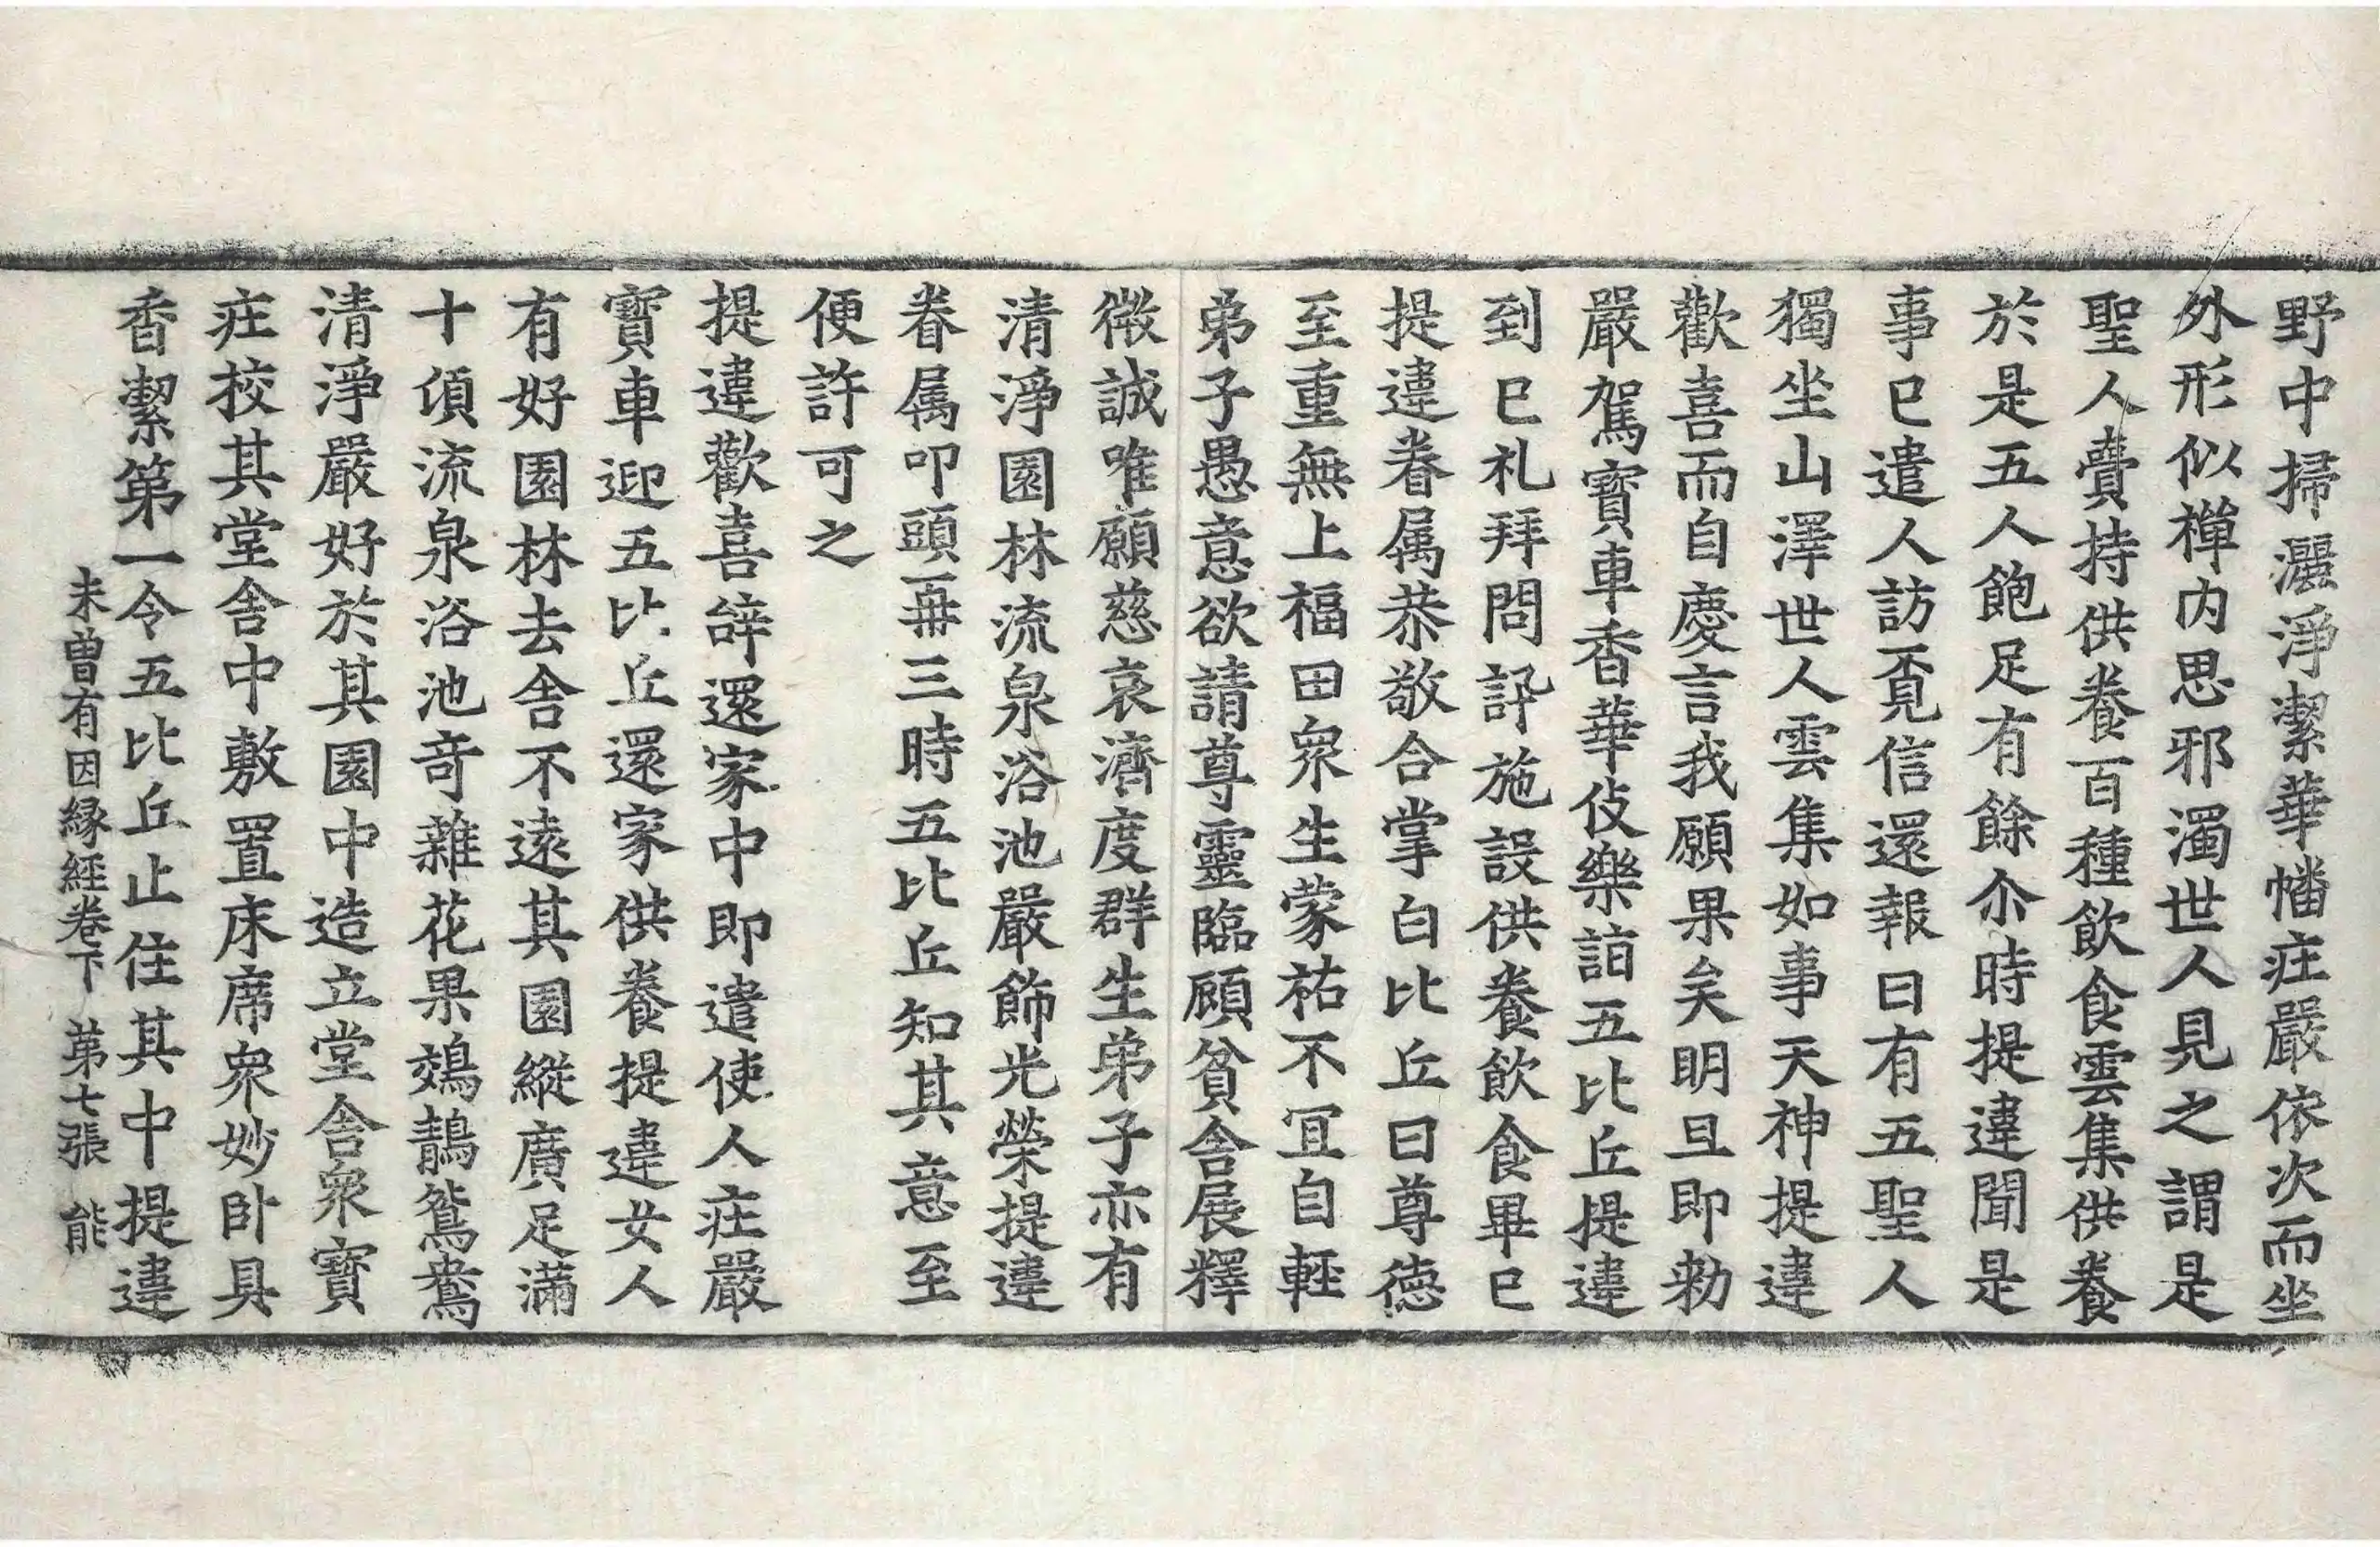 野中掃灑淨潔華幡莊嚴依次而坐
外形似禪内思邪濁世人見之謂是
聖人賷持供養百種飲食雲集供養
於是五人飽足有餘尒時提違聞是
事已遣人訪覔信還報曰有五聖人
獨坐山澤世人雲集如事天神提違
歡喜而自慶言我願果矣明旦即勑
嚴駕寶車香華伎樂詣五比丘提違
到已礼拜問訊施設供養飲食畢已
提違眷属恭敬合掌白比丘曰尊德
至重無上福田衆生蒙祐不冝自輕
弟子愚意欲請尊靈臨顧貧舍展釋
微誠唯願慈哀濟度群生弟子亦有
清淨園林流泉浴池嚴飾光榮提違
眷属叩頭再三時五比丘知其意至
便許可之
提違歡喜辝還家中即遣使人莊嚴
寶車迎五比丘還家供養提違女人
有好園林去舍不遠其園縱廣足滿
十傾流泉浴池奇雜花果鵁鶄鴛鴦
清淨嚴好於其園中造立堂舍衆寶
莊校其堂舍中敷置床席衆妙卧具
香潔第一令五比丘止住其中提違
未曽有因縁經卷下　苐七張　能